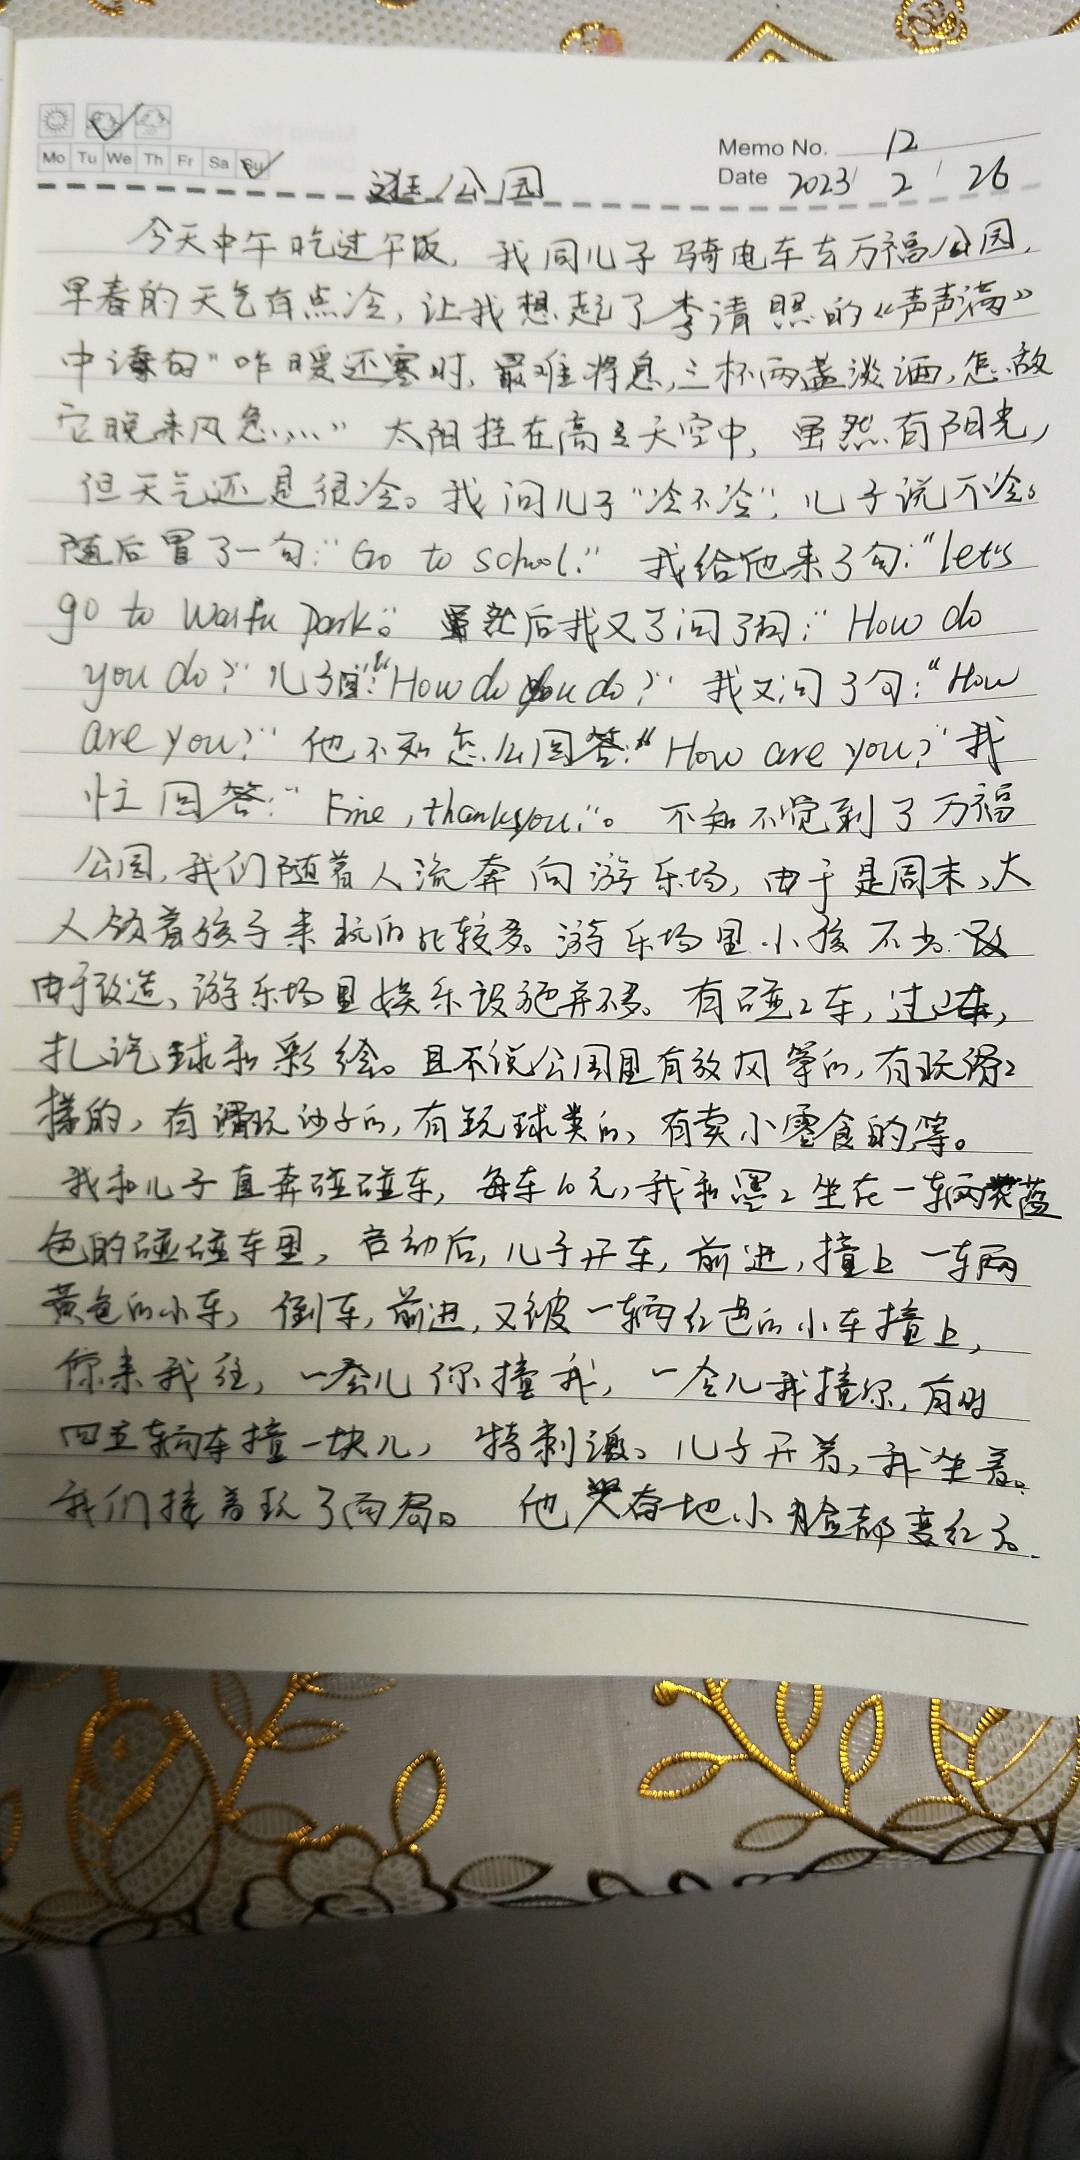 Memo No. 12
Mo Tu We Th Fr Sa Su
Date 2023 / 2 / 26
逛公园
今天中午吃过午饭，我同儿子骑电车去万福公园，
早春的天气有点冷，让我想起了李清照的《声声满》
中诗句"咋暖还寒时，最难将息，三杯两盏淡酒，怎敌
它晚来风急……" 太阳挂在高空天空中，虽然有阳光，
但天气还是很冷。我问儿子"冷不冷"，儿子说不冷。
随后冒了一句："Go to school." 我给他来了句："let's
go to Wanfu Park." 然后我又了问了句："How do
you do?" 儿子回："How do you do?" 我又问了句："How
are you?" 他不知怎么回答："How are you?" 我
忙回答："Fine, thank you."。不知不觉到了万福
公园，我们随着人流奔向游乐场，由于是周末，大
人领着孩子来玩的比较多。游乐场里小孩不少。
由于改造，游乐场里娱乐设施并不多。有碰碰车，过山车，
扎汽球和彩绘。且不说公园里有放风筝的，有玩滑滑
梯的，有玩沙子的，有玩球类的，有卖小零食的等。
我和儿子直奔碰碰车，每车10元，我和墨墨坐在一辆蓝
色的碰碰车里，启动后，儿子开车，前进，撞上一辆
黄色的小车，倒车，前进，又被一辆红色的小车撞上，
你来我往，一会儿你撞我，一会儿我撞你，有时
四五辆车撞一块儿，特刺激。儿子开着，我坐着。
我们接着玩了两局。他兴奋地小脸都变红了.